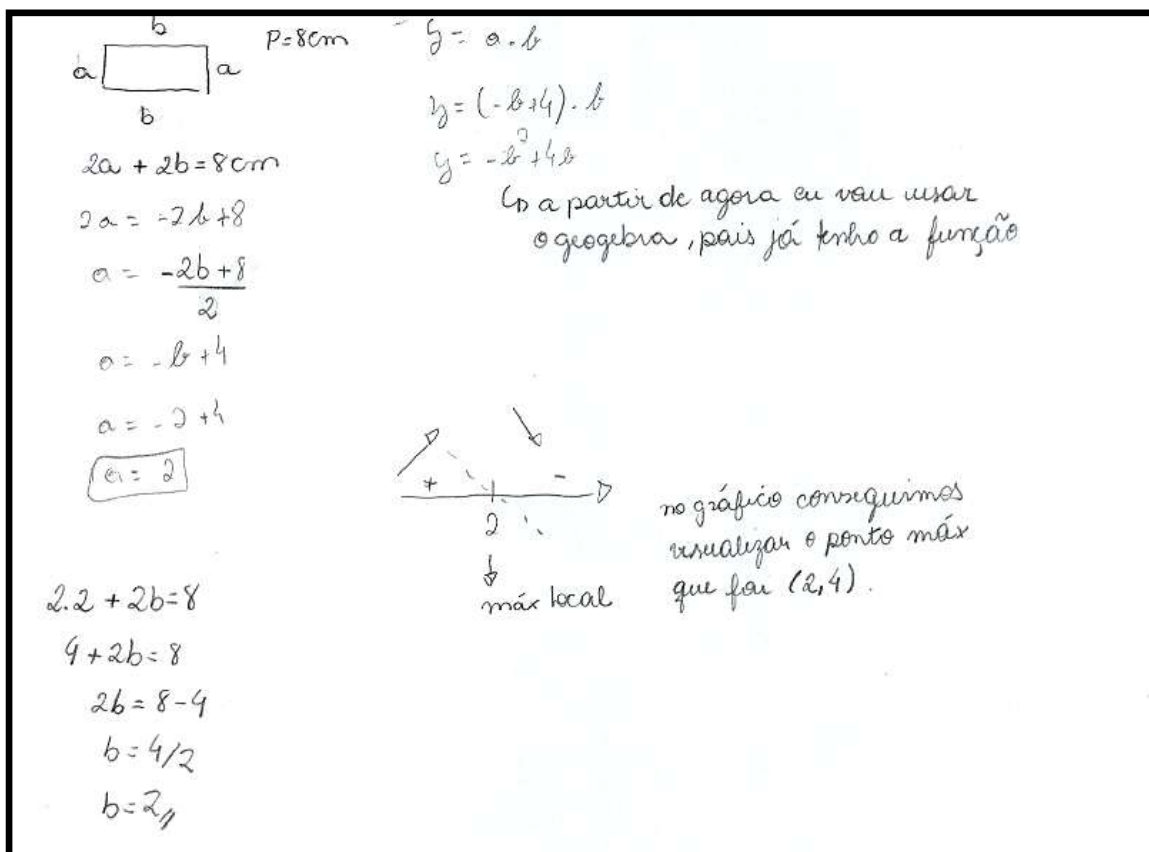 b
P=8cm
a a
b
2a + 2b = 8cm
2a = -2b+8
a = -2b+8
2
a = -b+4
a = -2+4
a = 2
2.2 + 2b=8
4+2b=8
2b=8-4
b=4/2
b=2//
y = a.b
y = (-b+4).b
y = -b²+4b
↳ a partir de agora eu vou usar
o geogebra, pois já tenho a função
+ -
2
máx local
no gráfico conseguimos
visualizar o ponto máx
que foi (2,4).